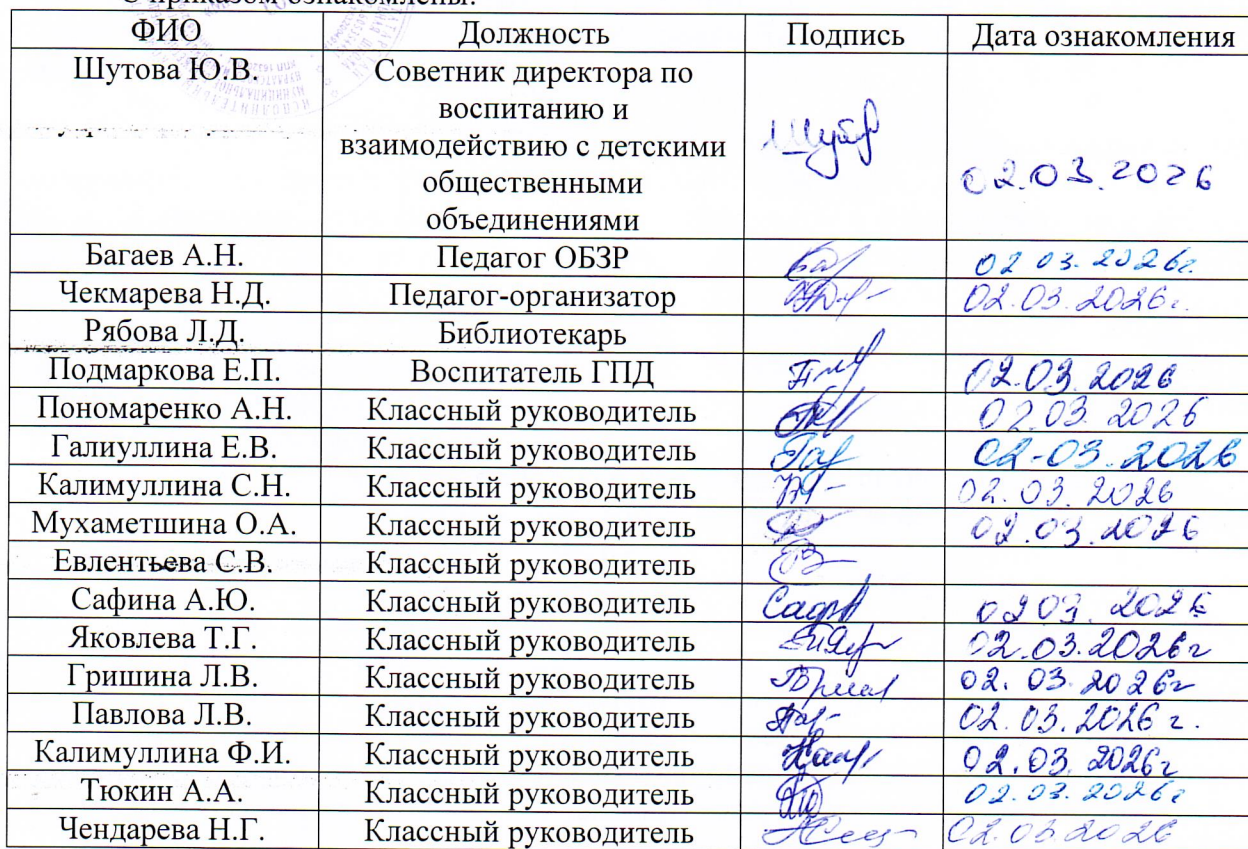 С приказом ознакомлены:
ФИО Должность Подпись Дата ознакомления
Шутова Ю.В. Советник директора по
воспитанию и
взаимодействию с детскими
общественными
объединениями
02.03.2026
Багаев А.Н. Педагог ОБЗР 02 03. 2026г.
Чекмарева Н.Д. Педагог-организатор 02.03.2026г.
Рябова Л.Д. Библиотекарь
Подмаркова Е.П. Воспитатель ГПД 02.03.2026
Пономаренко А.Н. Классный руководитель 02.03.2026
Галиуллина Е.В. Классный руководитель 02-03.2026
Калимуллина С.Н. Классный руководитель 02.03.2026
Мухаметшина О.А. Классный руководитель 02.03.2026
Евлентьева С.В. Классный руководитель
Сафина А.Ю. Классный руководитель 02 03. 2026
Яковлева Т.Г. Классный руководитель 02.03.2026г
Гришина Л.В. Классный руководитель 02.03.2026г
Павлова Л.В. Классный руководитель 02.03.2026 г.
Калимуллина Ф.И. Классный руководитель 02.03.2026г
Тюкин А.А. Классный руководитель 02.03.2026г
Чендарева Н.Г. Классный руководитель 02.03.2026